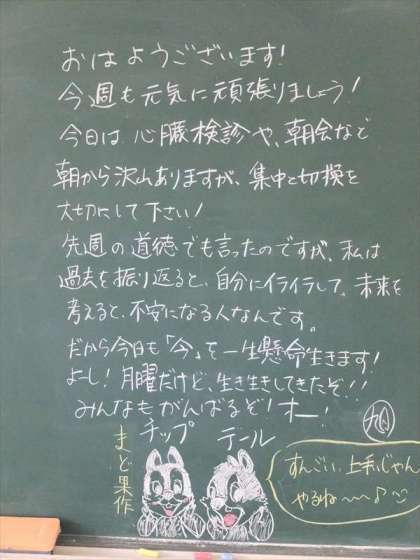 おはようございます!
今週も元気に頑張りましょう!
今日は心臓検診や、朝会などで
朝から沢山ありますが、集中と切換を
大切にして下さい!
先週の道徳でも言ったのですが、私は
過去を振り返ると、自分にイライラして、未来を
考えると、不安になる人なんです。
だから今日も「今」を一生懸命生きます!
よーし!月曜だけど、生き生きしてきたぞ!!
みんなもがんばるぞ!オー!
旭
チップ
デール
まど果作
すんごい上手いじゃん
やるね〜〜♪